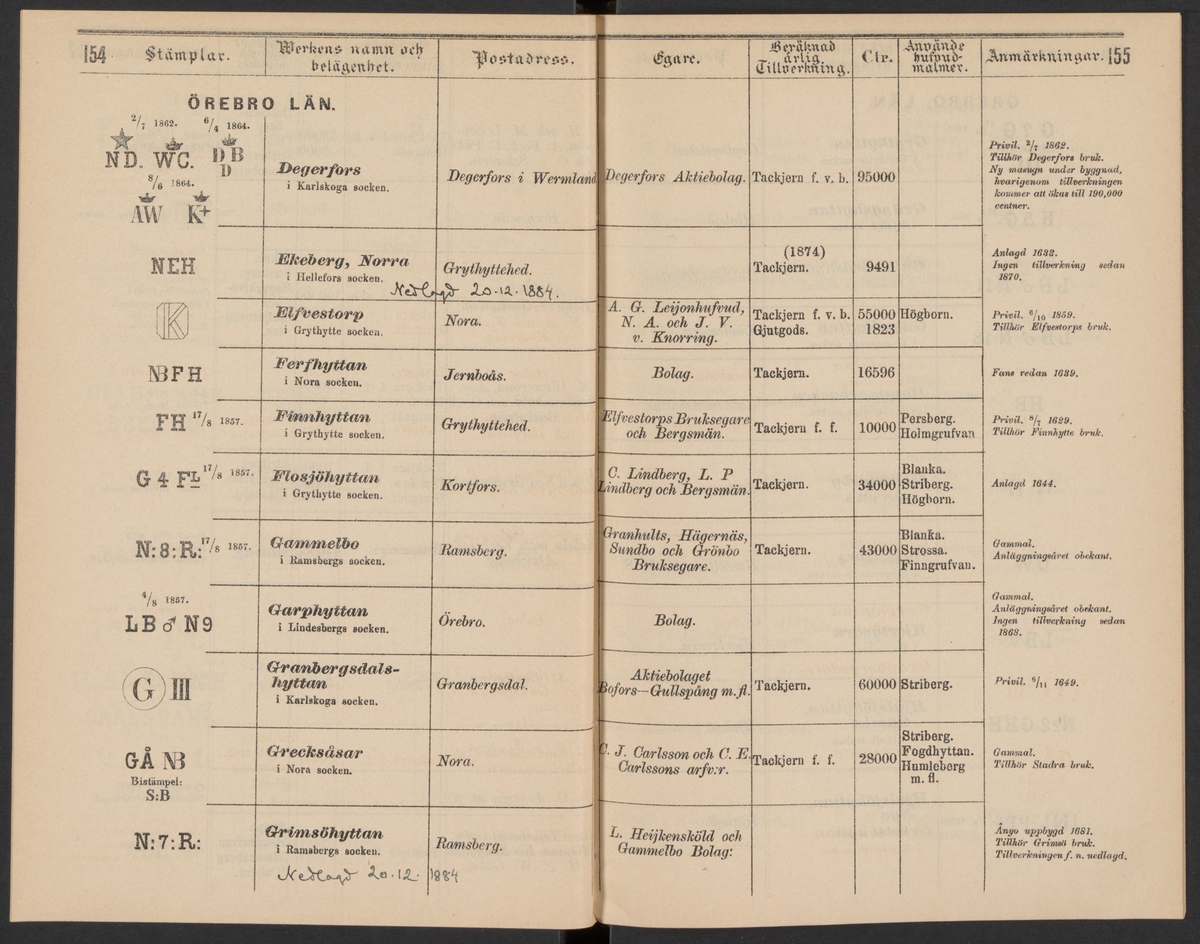 154
Stämplar.
Werkens namn och
belägenhet.
Postadress.
Egare.
Beräknad
årlig.
Tillverkning.
Ctr.
Använde
hufvud-
malmer.
Anmärkningar.
155
ÖREBRO LÄN.
2/7 1862. 6/4 1864.
ND. WC. DB
D
8/6 1864.
AW K+
Degerfors
i Karlskoga socken.
Degerfors i Wermland
Degerfors Aktiebolag.
Tackjern f. v. b.
95000
Privil. 2/7 1862.
Tillhör Degerfors bruk.
Ny masugn under byggnad,
hvarigenom tillverkningen
kommer att ökas till 190,000
centner.
NEH
Ekeberg, Norra
i Hellefors socken.
Nedlagd 20.12.1884.
Grythyttehed.
(1874)
Tackjern.
9491
Anlagd 1638.
Ingen tillverkning sedan
1870.
K
Elfvestorp
i Grythytte socken.
Nora.
A. G. Leijonhufvud,
N. A. och J. V.
v. Knorring.
Tackjern f. v. b.
Gjutgods.
55000
1823
Högborn.
Privil. 6/10 1859.
Tillhör Elfvestorps bruk.
NBFH
Ferfhyttan
i Nora socken.
Jernboås.
Bolag.
Tackjern.
16596
Fans redan 1639.
FH 17/8 1857.
Finnhyttan
i Grythytte socken.
Grythyttehed.
Elfvestorps Bruksegare
och Bergsmän.
Tackjern f. f.
10000
Persberg.
Holmgrufvan
Privil. 8/7 1629.
Tillhör Finnhytte bruk.
G 4 FL 17/8 1857.
Flosjöhyttan
i Grythytte socken.
Kortfors.
C. Lindberg, L. P
Lindberg och Bergsmän.
Tackjern.
34000
Blanka.
Striberg.
Högborn.
Anlagd 1644.
N:8:R: 17/8 1857.
Gammelbo
i Ramsbergs socken.
Ramsberg.
Granhults, Hägernäs,
Sundbo och Grönbo
Bruksegare.
Tackjern.
43000
Blanka.
Strossa.
Finngrufvan.
Gammal.
Anläggningsåret obekant.
4/8 1857.
LB♂N9
Garphyttan
i Lindesbergs socken.
Örebro.
Bolag.
Gammal.
Anläggningsåret obekant.
Ingen tillverkning sedan
1868.
G III
Granbergsdals-
hyttan
i Karlskoga socken.
Granbergsdal.
Aktiebolaget
Bofors—Gullspång m.fl.
Tackjern.
60000
Striberg.
Privil. 6/11 1649.
GÅ NB
Bistämpel:
S:B
Grecksåsar
i Nora socken.
Nora.
C. J. Carlsson och C. E.
Carlssons arfv:r.
Tackjern f. f.
28000
Striberg.
Fogdhyttan.
Humleberg
m. fl.
Gammal.
Tillhör Stadra bruk.
N:7:R:
Grimsöhyttan
i Ramsbergs socken.
Nedlagd 20.12. 1884
Ramsberg.
L. Heijkensköld och
Gammelbo Bolag:
Ånyo uppbygd 1681.
Tillhör Grimsö bruk.
Tillverkningen f. n. nedlagd.